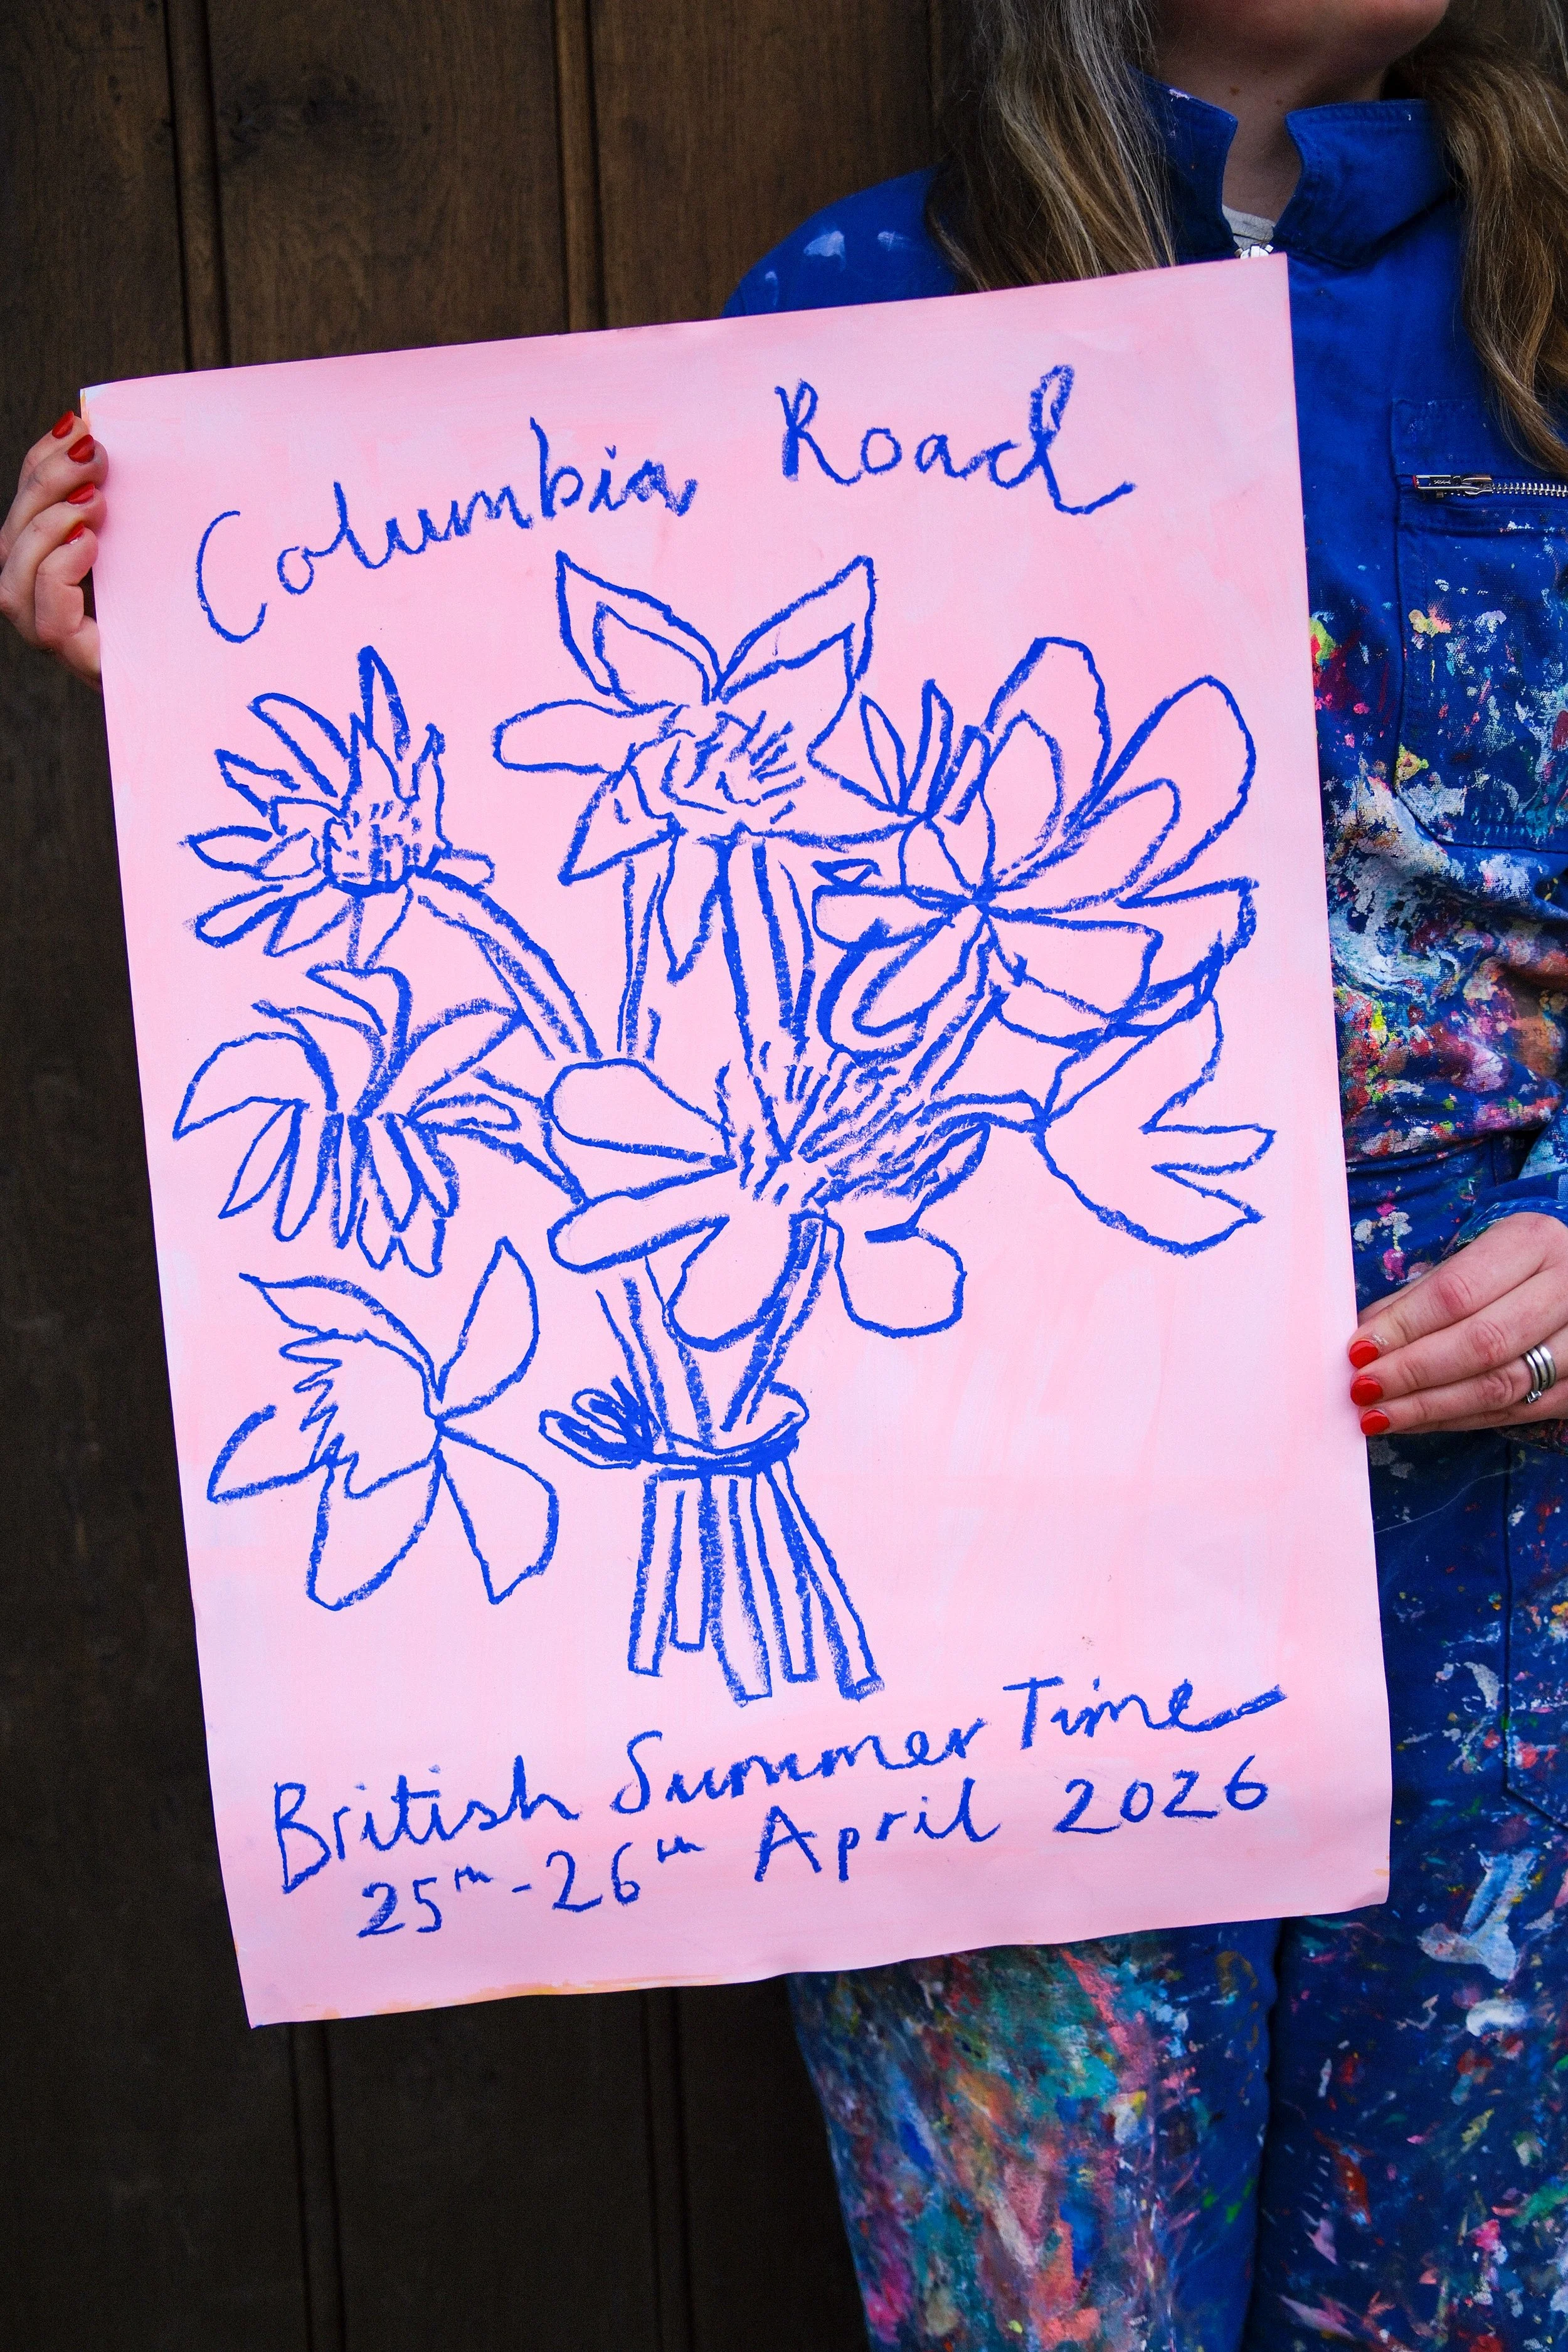 Columbia Road
British Summer Time
25th - 26th April 2026